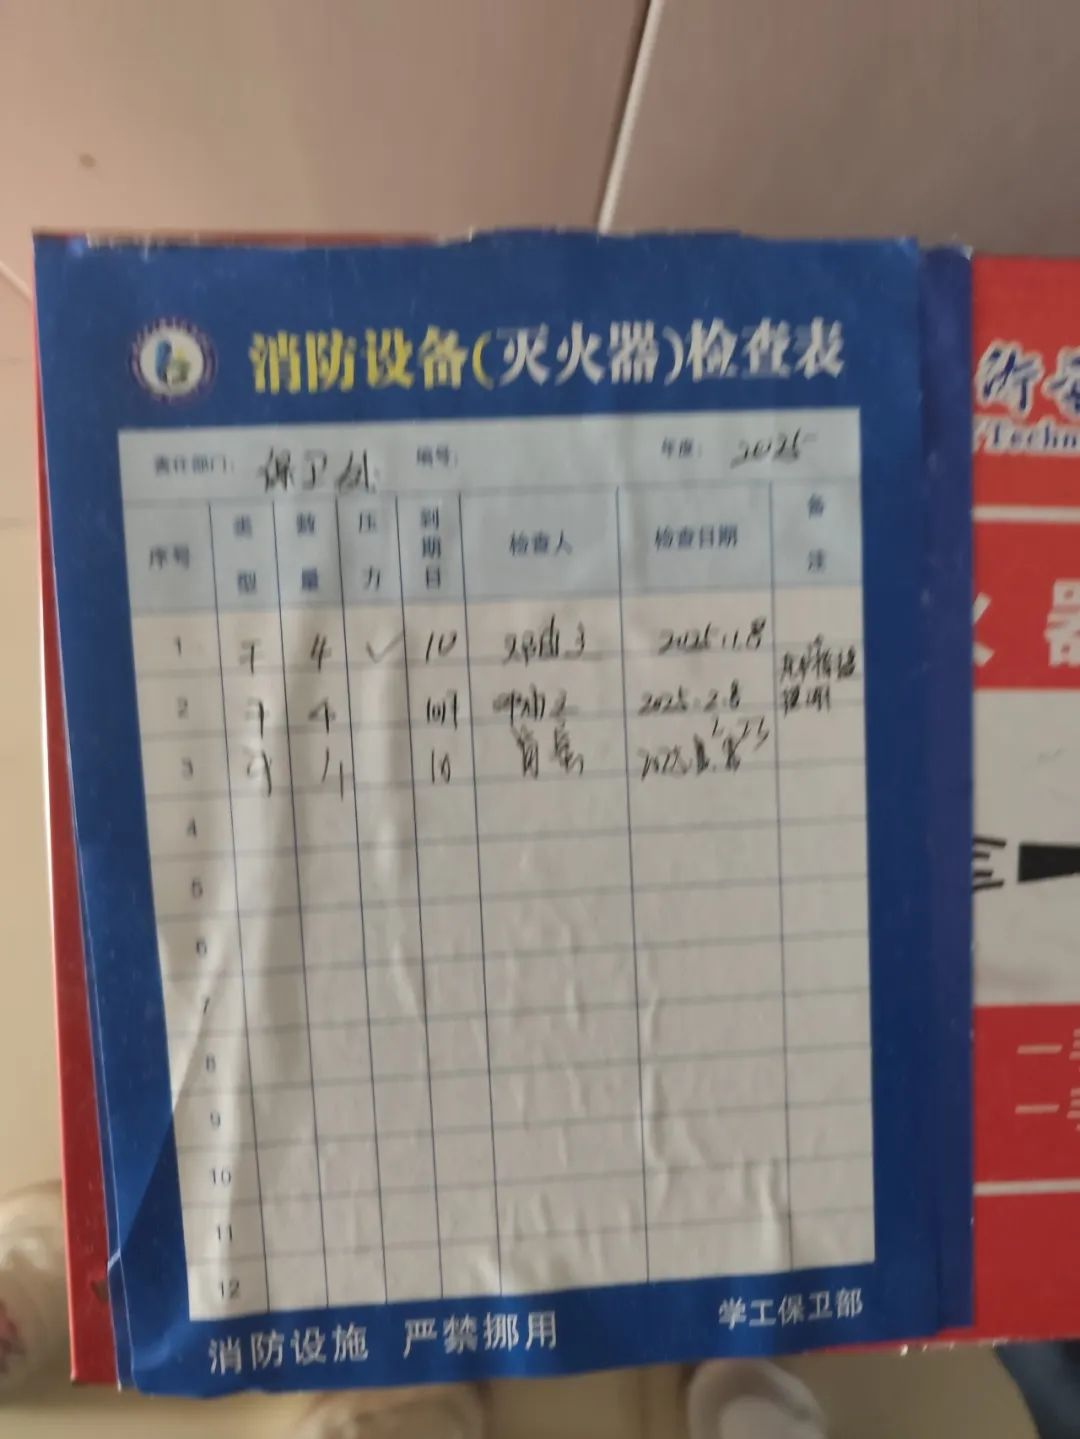 消防设备(灭火器)检查表
责任部门： 保卫处 编号： 年度： 2025
序号 类型 数量 压力 到期日 检查人 检查日期 备注
1 干 4 ✓ 10 2025.1.8
2 干 4 2025.2.8
3 干 4 10
4
5
6
7
8
9
10
11
12
消防设施 严禁挪用 学工保卫部
Techn
器